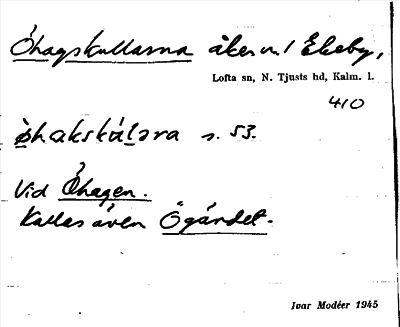 Óhagskullarna åker n. / Ekeby,
Lofta sn, N. Tjusts hd, Kalm. l.
410
s. 53.
Vid Óhagen.
Kallas även Ögärdet.
Ivar Modéer 1945